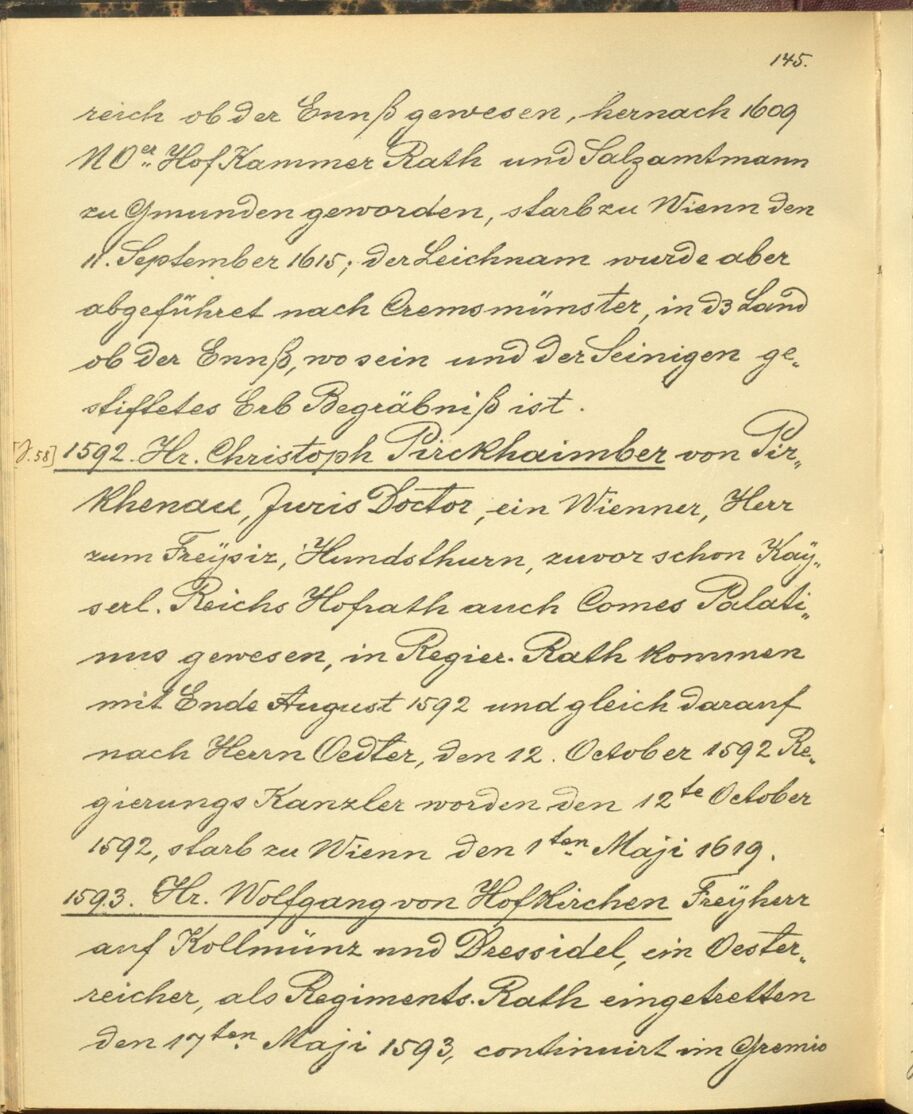 145.
reich ob der Ennß gewesen, hernach 1609
NOer. Hof Kammer Rath und Salzamtmann
zu Gmunden geworden, starb zu Wienn den
11. September 1615; der Leichnam wurde aber
abgeführet nach Cremsmünster, in dz Land
ob der Ennß, wo sein und der Seinigen ge„
stiftetes Erb Begräbniß ist.
1592. Hr. Christoph Pirckhaimber von Pir„
khenau, Juris Doctor, ein Wienner, Herr
zum Freÿsiz, Hundsthurn, zuvor schon Kaÿ„
serl. Reichs Hofrath auch Comes Palati„
nus gewesen, in Regier. Rath kommen
mit Ende August 1592 und gleich darauf
nach Herrn Oedter, den 12. October 1592 Re„
gierungs Kanzler worden den 12te October
1592, starb zu Wienn den 1ten. Maji 1619.
1593. Hr. Wolfgang von Hofkirchen Freÿherr
auf Kollmünz und Dressidel, ein Oester„
reicher, als Regiments-Rath eingetretten
den 17ten. Maji 1593, continuirt im Gremio